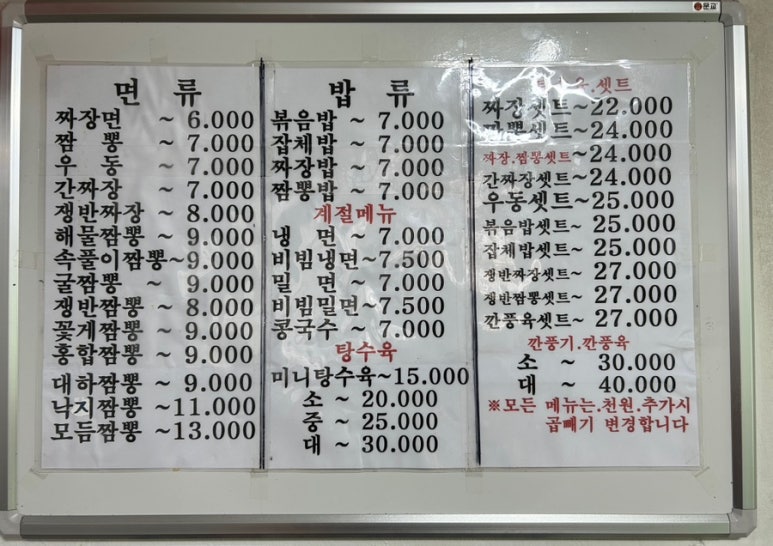 문교
면 류
짜장면 ~ 6.000
짬 뽕 ~ 7.000
우 동 ~ 7.000
간짜장 ~ 7.000
쟁반짜장 ~ 8.000
해물짬뽕 ~ 9.000
속풀이짬뽕~9.000
굴짬뽕 ~ 9.000
쟁반짬뽕 ~ 8.000
꽃게짬뽕 ~ 9.000
홍합짬뽕 ~ 9.000
대하짬뽕 ~ 9.000
낙지짬뽕 ~11.000
모듬짬뽕 ~13.000
밥 류
볶음밥 ~ 7.000
잡체밥 ~ 7.000
짜장밥 ~ 7.000
짬뽕밥 ~ 7.000
계절메뉴
냉 면 ~ 7.000
비빔냉면~7.500
밀 면 ~ 7.000
비빔밀면~7.500
콩국수 ~ 7.000
탕수육
미니탕수육~15.000
소 ~ 20.000
중 ~ 25.000
대 ~ 30.000
셋트
짜장셋트~22.000
짬뽕셋트~24.000
짜장.짬뽕셋트~24.000
간짜장셋트~24.000
우동셋트~25.000
볶음밥셋트~ 25.000
잡체밥셋트~ 25.000
쟁반짜장셋트~ 27.000
쟁반짬뽕셋트~ 27.000
깐풍육셋트~ 27.000
깐풍기.깐풍육
소 ~ 30.000
대 ~ 40.000
※모든 메뉴는.천원.추가시
곱빼기 변경합니다